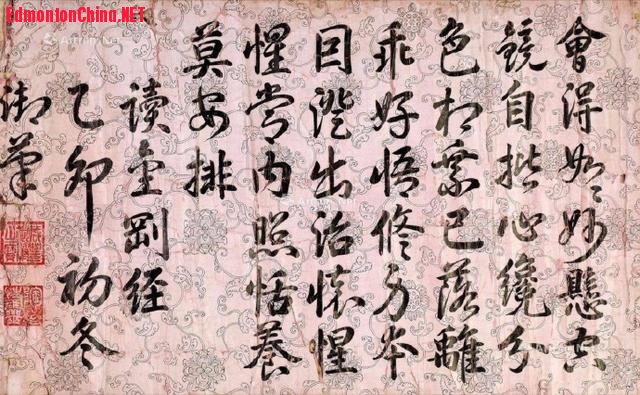 EdmontonChina.NET
會得如〻妙懸空
鏡自揩心纔分
色相業已落離
乖好悟修身本
回澄出治懷惺
惺常内照恬養
莫安排
读金剛经
乙卯初冬
御筆